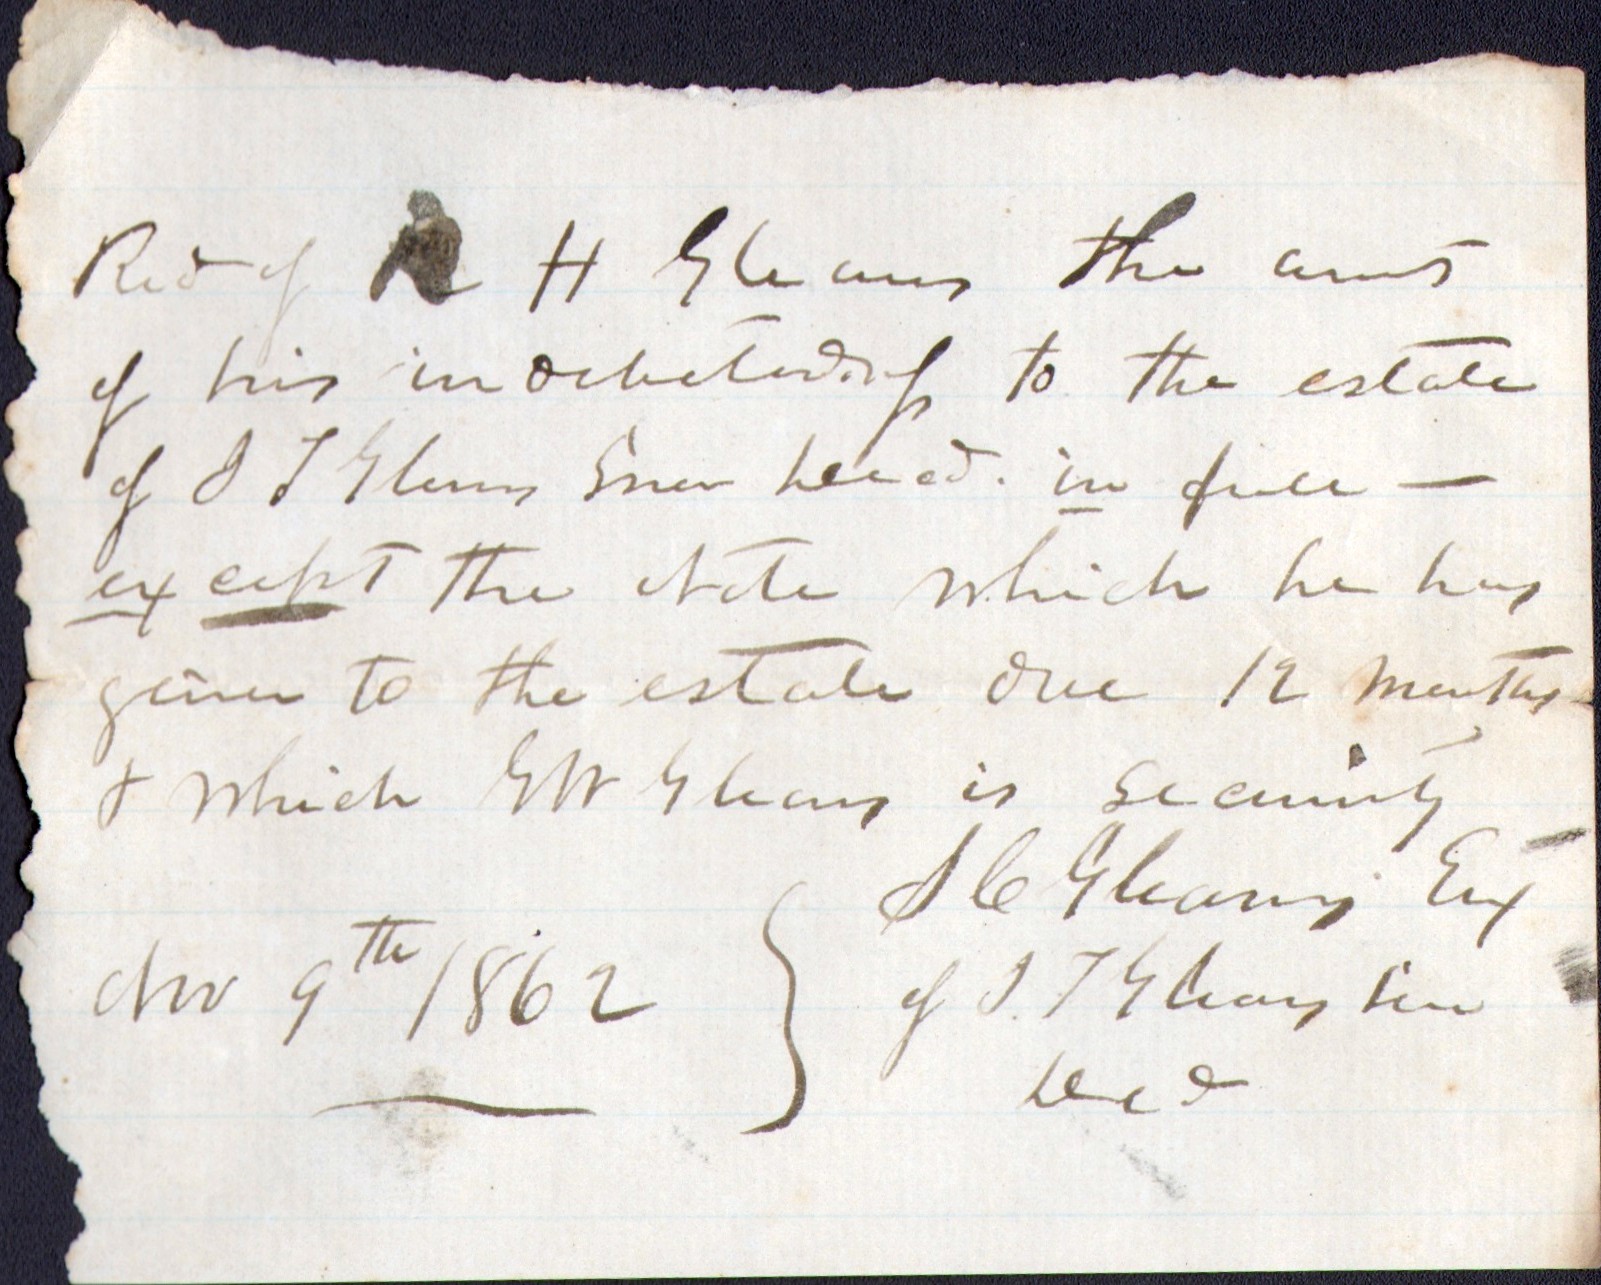 Recd of R H Gleaves the amt
of his indebtedness to the estate
of J T Gleaves Senr decd. in full —
except the Note which he has
given to the estate due 12 months
& which G W Gleaves is security
J C Gleaves Exr
of J. T Gleaves Sen
decd
Nov 9th 1862